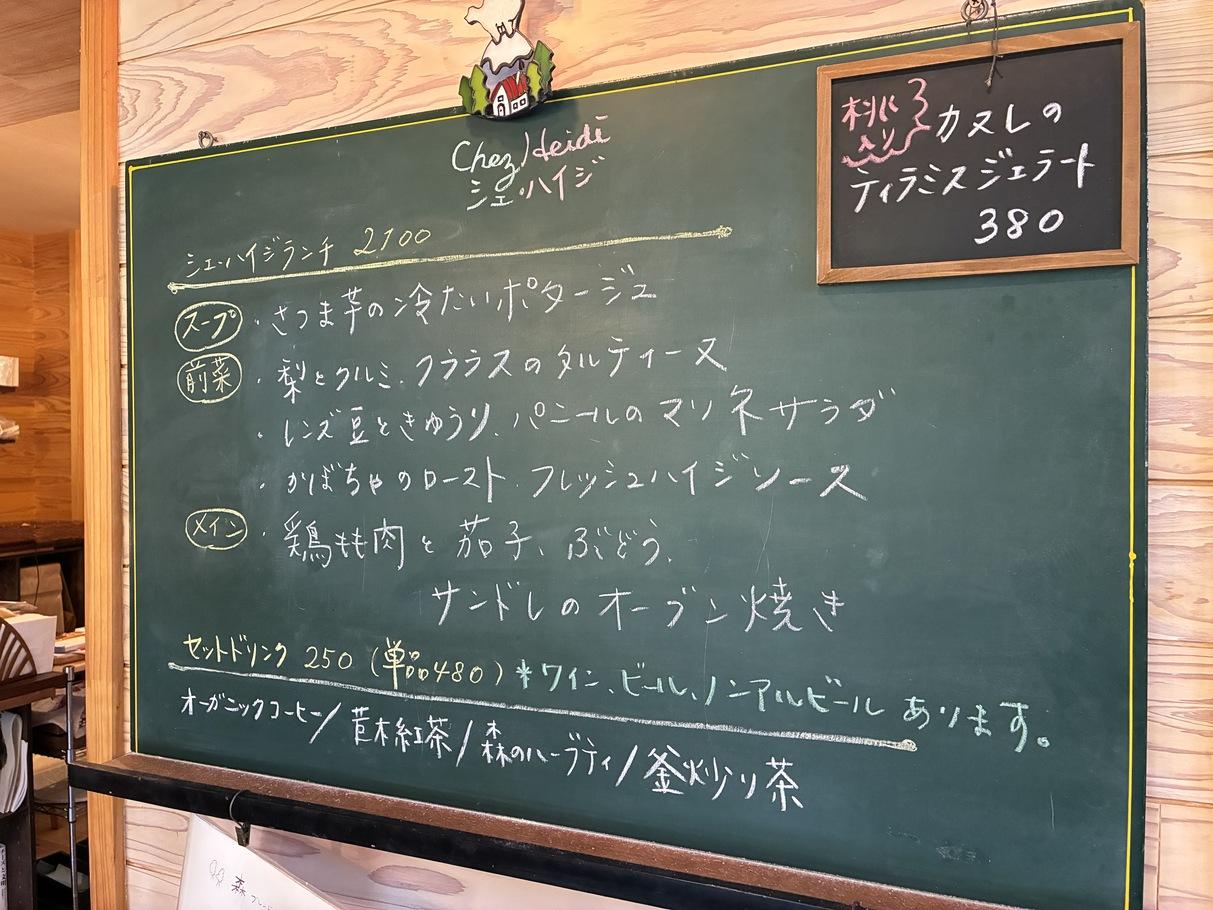 Chez Heidi
シェ・ハイジ
桃入り カヌレの
ティラミスジェラート
380
シェ・ハイジランチ 2100
スープ ・さつま芋の冷たいポタージュ
前菜 ・梨とクルミ、クララスのタルティーヌ
・レンズ豆ときゅうり、パニールのマリネサラダ
・かぼちゃのロースト フレッシュハイジソース
メイン ・鶏もも肉と茄子、ぶどう、
サンドレのオーブン焼き
セットドリンク 250 (単品480) *ワイン、ビール、ノンアルビール あります。
オーガニックコーヒー/苣木紅茶/森のハーブティ/釜炒り茶
森